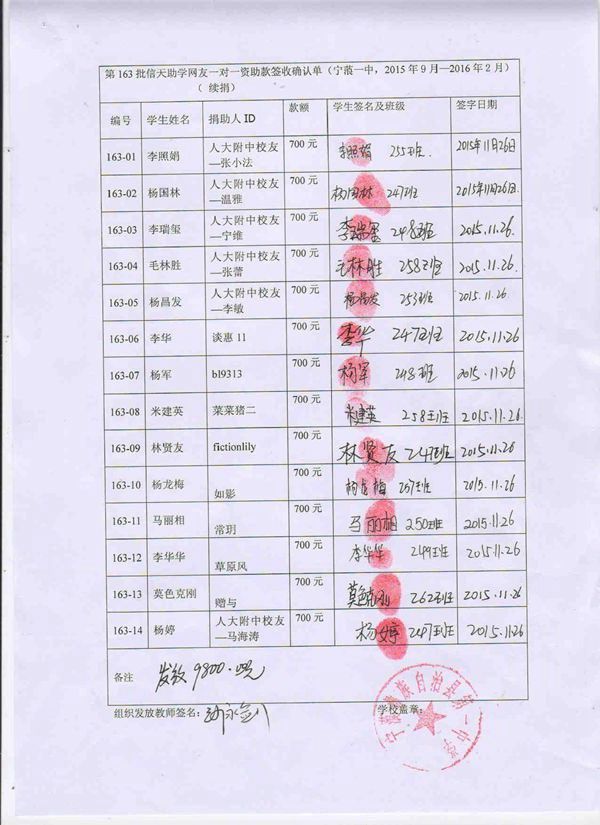 第 163 批信天助学网友一对一资助款签收确认单（宁蒗一中，2015 年 9 月—2016 年 2 月）
（ 续捐）
编号 学生姓名 捐助人 ID 款额 学生签名及班级 签字日期
163-01 李照娟 人大附中校友—张小法 700 元 李照娟 255班. 2015年11月26日
163-02 杨国林 人大附中校友—温雅 700 元 杨国林 247班 2015年11月26日.
163-03 李瑞玺 人大附中校友—宁维 700 元 李瑞玺 248班 2015.11.26.
163-04 毛林胜 人大附中校友—张蕾 700 元 毛林胜 258班 2015.11.26.
163-05 杨昌发 人大附中校友—李敏 700 元 杨昌发 253班 2015.11.26.
163-06 李华 谈惠 11 700 元 李华 247班 2015.11.26
163-07 杨军 bl9313 700 元 杨军 248班 2015.11.26
163-08 米建英 菜菜猪二 700 元 米建英 258班 2015.11.26.
163-09 林贤友 fictionlily 700 元 林贤友 247班 2015.11.26
163-10 杨龙梅 如影 700 元 杨龙梅 257班 2015.11.26
163-11 马丽相 常玥 700 元 马丽相 250班 2015.11.26
163-12 李华华 草原风 700 元 李华华 249班 2015.11.26
163-13 莫色克刚 赠与 700 元 莫色克刚 262班 2015.11.26
163-14 杨婷 人大附中校友—马海涛 700 元 杨婷 247班 2015.11.26
备注 发放 9800.
组织发放教师签名： 学校盖章：
族自治县第一中学